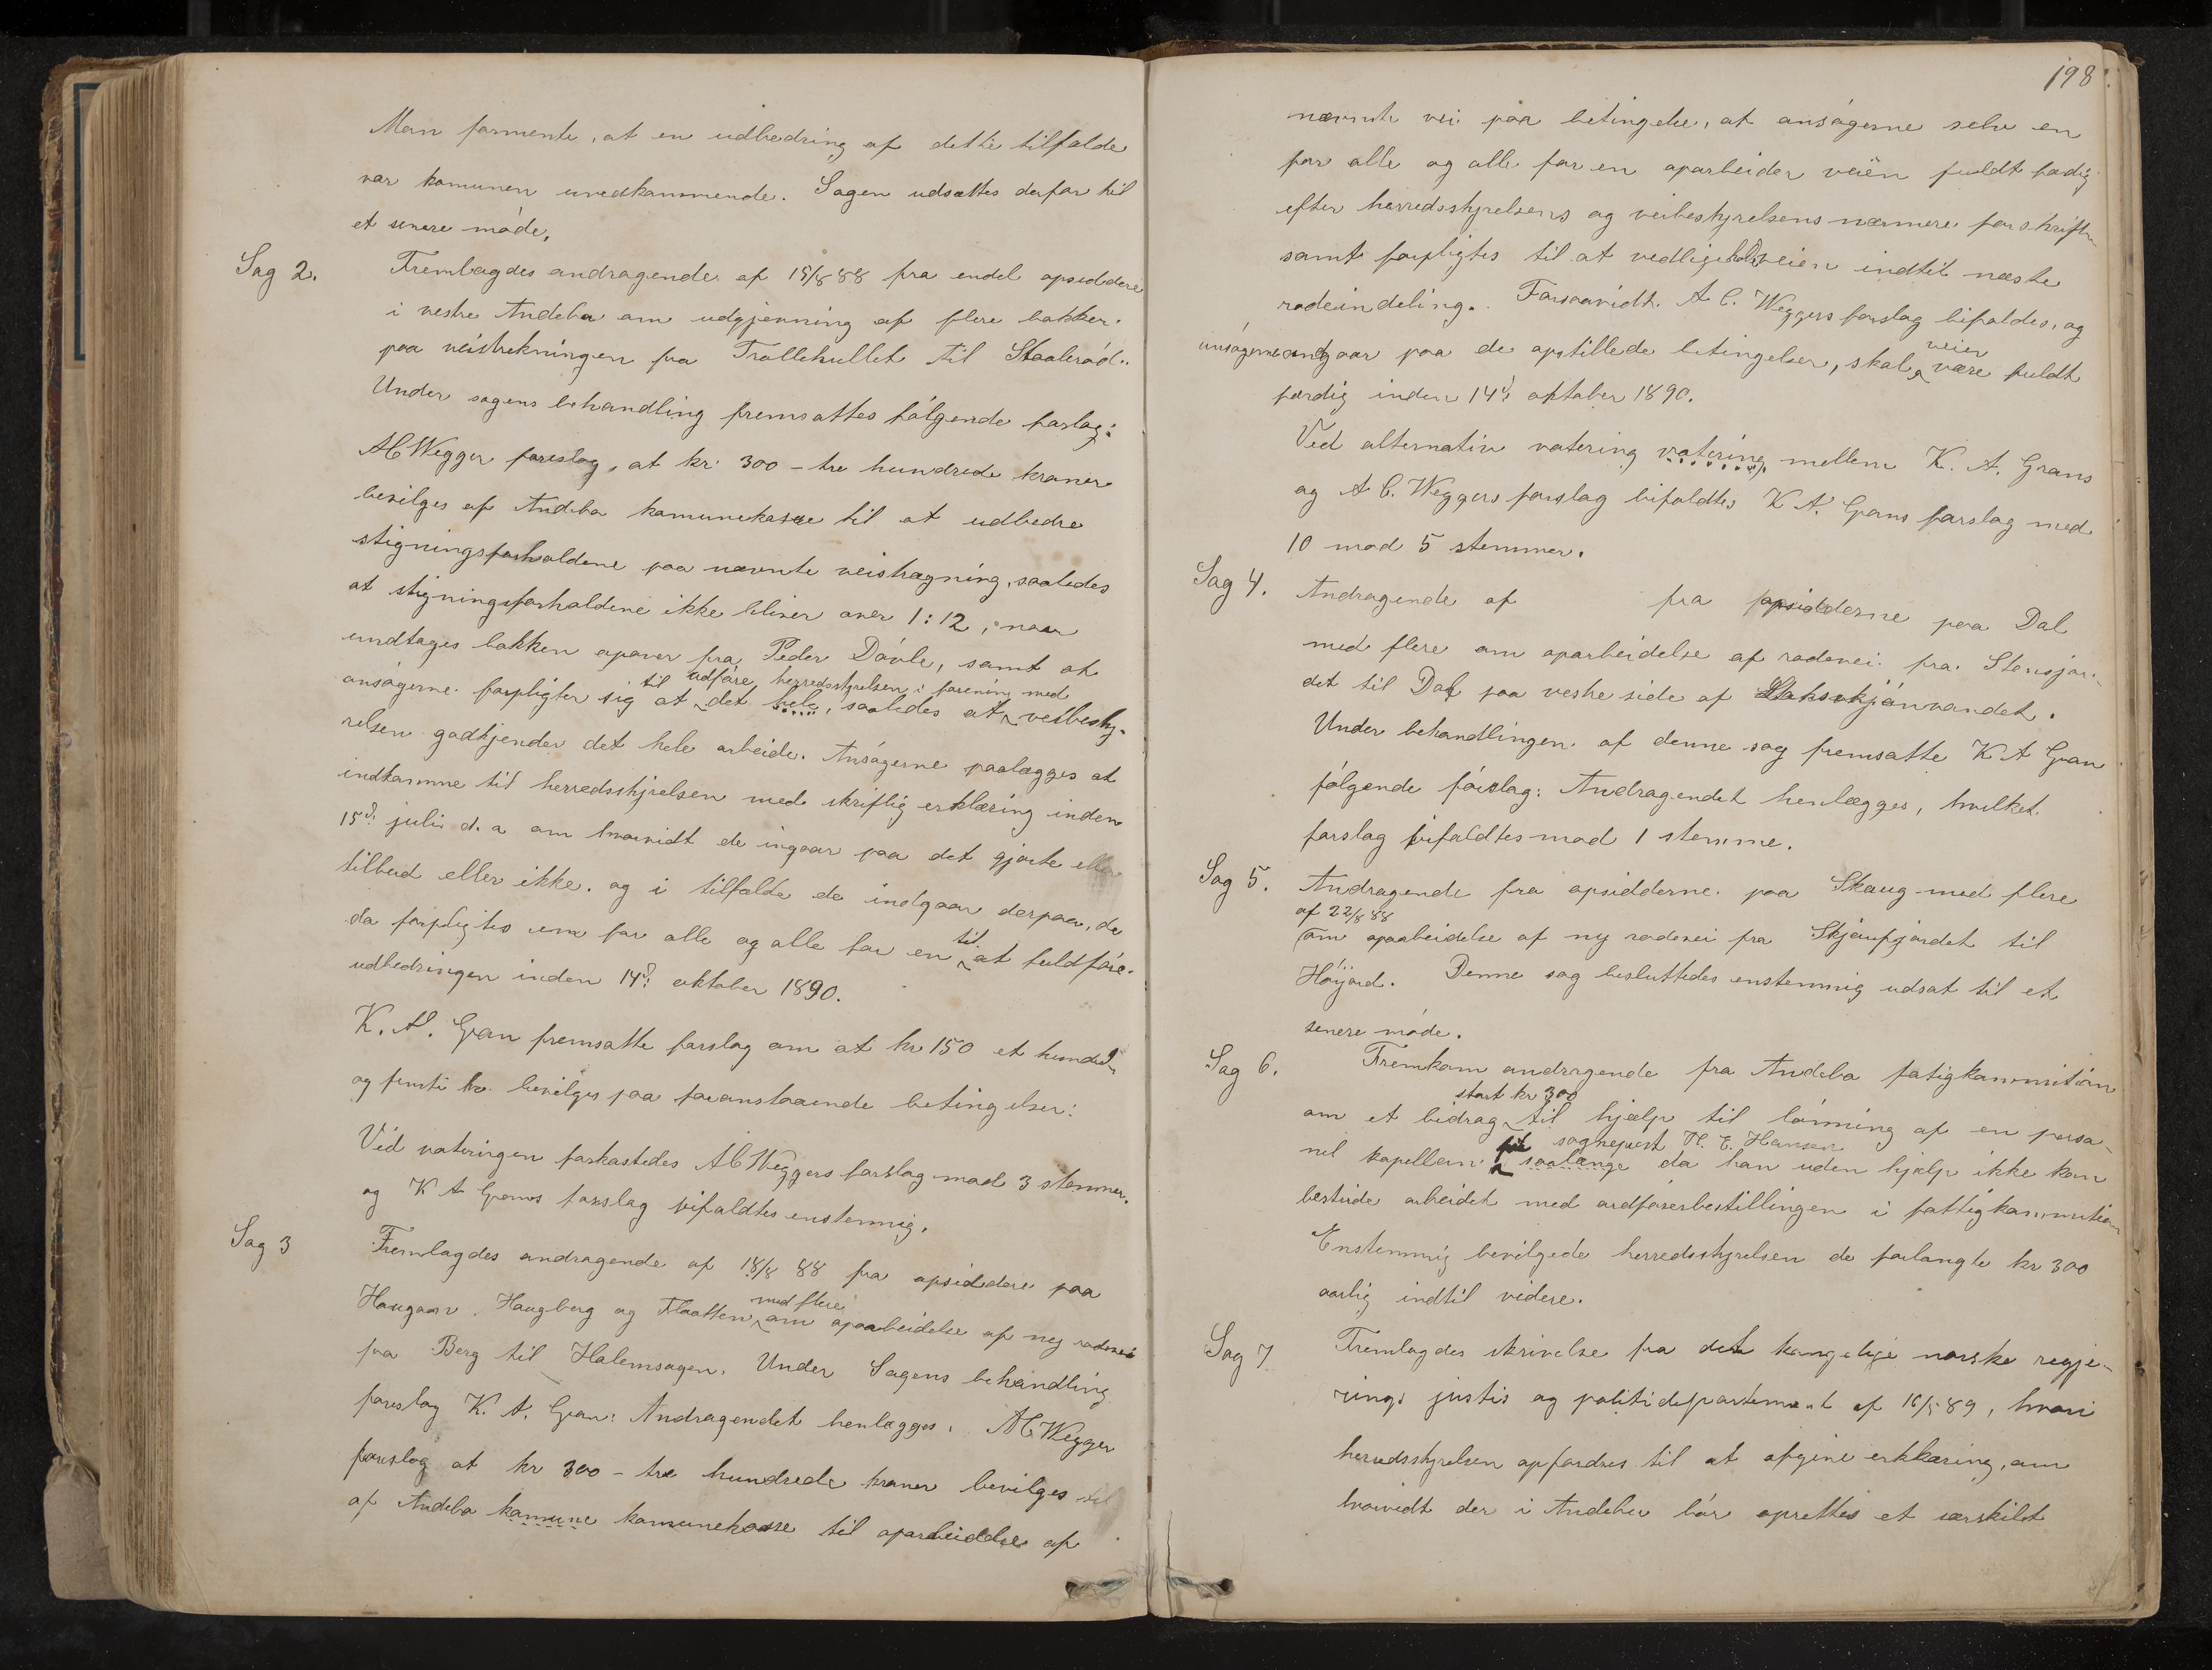 Man formente, at en udbedring af dette tilfælde
var komunen uvedkommende. Sagen udsættes derfor til
et senere møde.
Sag 2. Fremlagdes andragende af 15/8 88 fra endel opsiddere
i vestre Andebu om udgjevning af flere bakker
paa veistrekningen fra Trollehullet til Staalerød.
Under sagens behandling fremsattes følgende forslag:
AC Wegger foreslog, at kr. 300 - tre hundrede kroner
bevilges af Andebu komunekasse til at udbedre
stigningsforholdene paa nævnte veistrægning, saaledes
at stigningsforholdene ikke bliver over 1:12, naar
undtages bakken opover fra Peder Døvle, samt at
til udføre herredsstyrelsen i forening med
ansøgerne forpligter sig at det hele, saaledes at veibesty-
relsen godkjender det hele arbeide. Ansøgerne paalægges at
indkomme til herredsstyrelsen med skriftlig erklæring inden
15d. juli d. a om hvorvidt de ingaar paa det gjorte
tilbud eller ikke. og i tilfælde de indgaar derpaa, de
til
da forpligtes en for alle og alle for en at fuldføre
udbedringen inden 14d. oktober 1890.
K. A. Gran fremsatte forslag om at kr 150 et hundred
og femti kr. bevilges paa foranstaaende betingelser:
Ved voteringen forkastedes AC Weggers forslag mod 3 stemmer.
og K A Grans forslag bifaldtes enstemmig.
Sag 3 Fremlagdes andragende af 18/8 88 fra opsiddere paa
med flere
Haugaar, Haugberg og Flaatten om oparbeidelse af ny rodevei
fra Berg til Halemsagen. Under Sagens behandling
foreslog K. A. Gran: Andragendet henlægges. AC Wegger
foreslog at kr 300 - tre hundrede kroner bevilges til
af Andebu komune komunekasse til oparbeidelse af
198.
nævnte vei paa betingelse, at ansøgerne selv en
for alle og alle for en oparbeider veien fuldt færdig
efter herredsstyrelsens og veibestyrelsens nærmere forskrifter
samt forpligtes til at vedligeholde veien indtil næste
rodeindeling. Forsaavidt A C. Weggers forslag bifaldes, og
veien
ansøgerne indgaar paa de opstillede betingelser, skal være fuldt
færdig inden 14d. oktober 1890.
Ved alternativ votering votering mellem K. A. Grans
og A C. Weggers forslag bifaldtes K A. Grans forslag med
10 mod 5 stemmer.
Sag 4. Andragende af fra opsidderne paa Dal
med flere om oparbeidelse af rodevei fra Stensjor-
det til Dal paa vestre side af
Under behandlingen af denne sag fremsatte K A Gran
følgende forslag: Andragendet henlægges, hvilket
forslag bifaldtes mod 1 stemme.
Sag 5. Andragende fra opsidderne paa Skaug med flere
af 22/8 88
om oparbeidelse af ny rodevei fra Skjaufjordet til
Høijord. Denne sag besluttedes enstemmig udsat til et
senere møde.
Sag 6. Fremkom andragende fra Andebu fatigkommition
stort kr 300
om et bidrag til hjælp til lønning af en perso-
sognepræst H. E. Hansen
nel kapellan saalænge da han uden hjælp ikke kan
bestride arbeidet med ordførerbestillingen i fattigkommition
Enstemmig bevilgede herredsstyrelsen de forlangte kr 300
aarlig indtil videre.
Sag 7 Fremlagdes skrivelse fra det kongelige norske regje-
rings justis og politidepartement af 16/5 89, hvori
herredsstyrelsen opfordres til at afgive erklæring, om
hvorvidt der i Andebu bør oprettes et særskilt